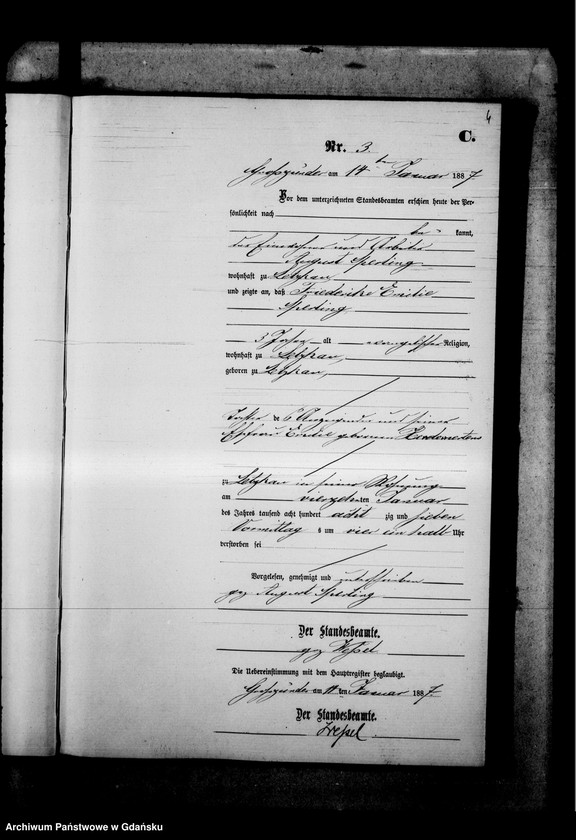 4
C.
Nr. 3.
am 14ten Januar 1887
Vor dem unterzeichneten Standesbeamten erschien heute der Per-
sönlichkeit nach
be kannt,
der Einwohner und Arbeiter
August Sperling
wohnhaft zu Letzkau
und zeigte an, daß Friederike Emilie
Sperling
3 Jahre alt evangelischer Religion,
wohnhaft zu Letzkau,
geboren zu Letzkau,
Tochter des Anzeigenden und seiner
Ehefrau Emilie geborenen
zu Letzkau in seiner Wohnung
am vierzehnten Januar
des Jahres tausend acht hundert acht zig und sieben
Vormittag s um vier ein halb Uhr
verstorben sei
Vorgelesen, genehmigt und unterschrieben
gez August Sperling
Der Standesbeamte.
gez Wessel
Die Uebereinstimmung mit dem Hauptregister beglaubigt.
am ten Januar 1887.
Der Standesbeamte.
Wessel.
Archiwum Państwowe w Gdańsku